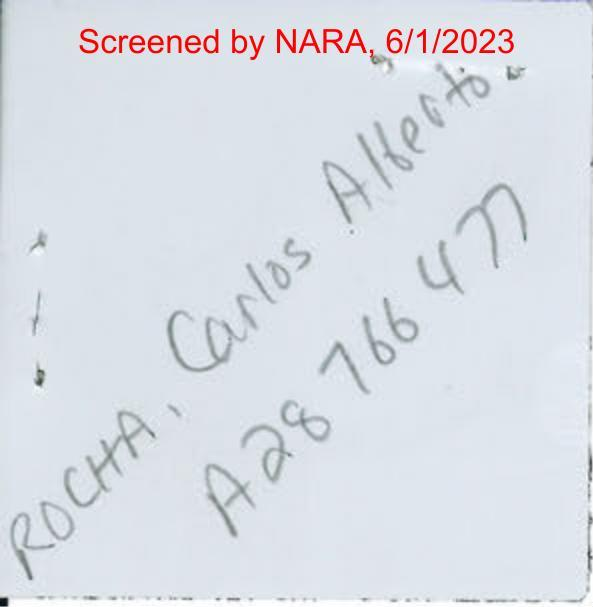 Screened by NARA, 6/1/2023
ROCHA, Carlos Alberto
A28 766 477